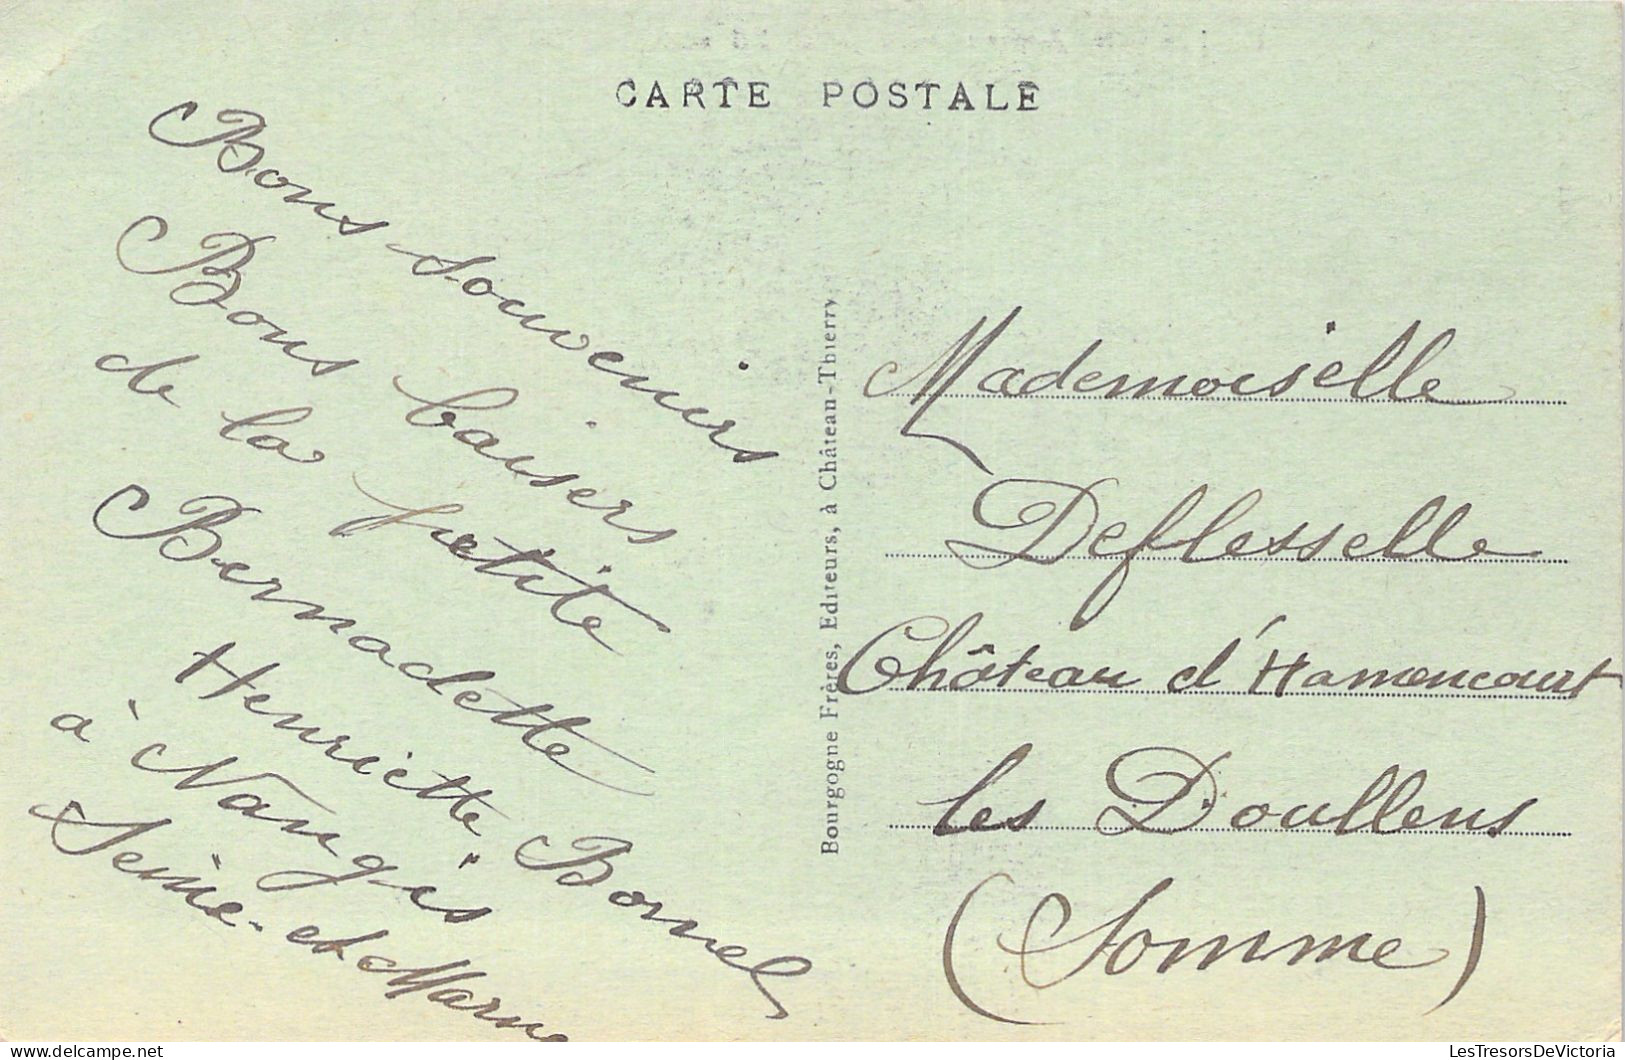 CARTE POSTALE
Bons souvenirs
Bons baisers
de la petite
Bernadette
Henriette Bonnel
à Nangis
Seine-et Marne
Bourgogne Frères, Editeurs, à Château-Thierry
Mademoiselle
Deflesselle
Château d'Hamencourt
les Doullens
(Somme)
LesTresorsDeVictoria